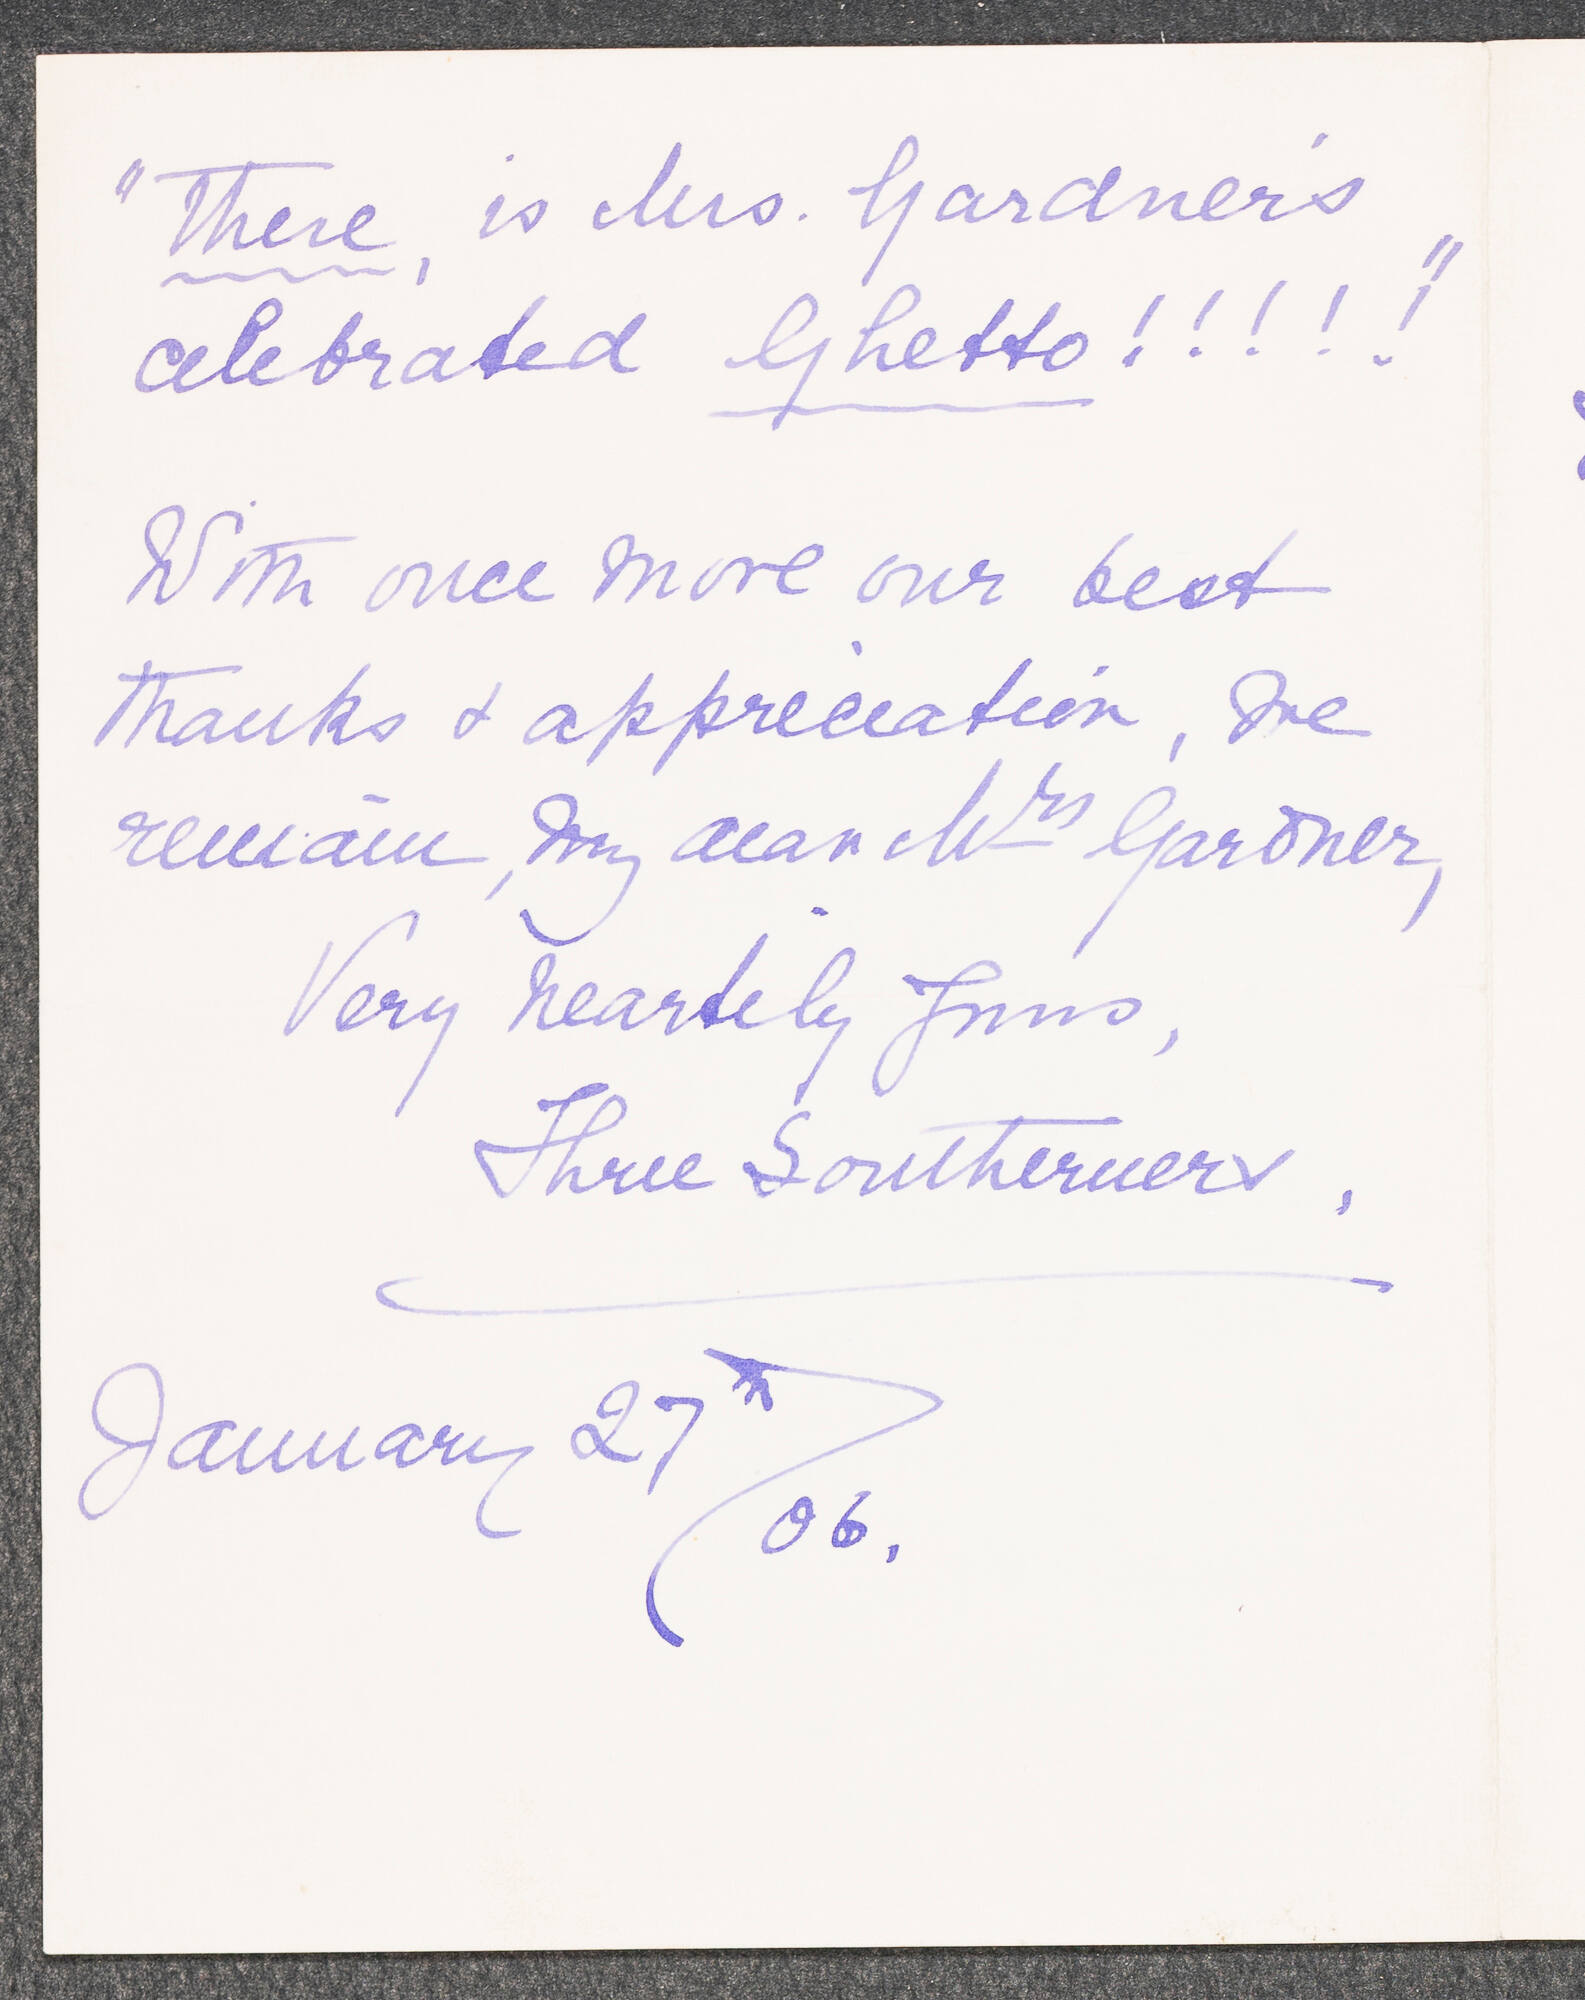 "There, is Mrs. Gardner's
celebrated Ghetto!!!!!"
With once more our best
thanks & appreciation, we
remain, my dear Mrs Gardner,
Very heartily Yours,
Three Southerners.
January 27th
06.